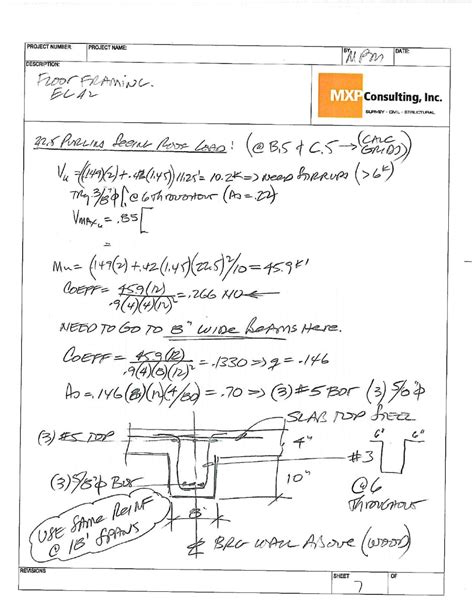 PROJECT NUMBER:
PROJECT NAME:
BY:
MPM
DATE:
DESCRIPTION:
FLOOR FRAMING.
MXPConsulting, Inc.
SURVEY - CIVIL - STRUCTURAL
22.5 PURLINS SEEING ROOF LOAD: (@ B.5 & C.5 → (CALC GRIDS))
Vu = ((.149(2) + .42(1.45)) 11.25' = 10.2K => NEED STIRRUPS (>6K)
TRY 3/8"φ [ @ 6 THROUGHOUT (As = .22)
VMAXu = .85 [
=
Mu = (.149(2) + .42(1.45)(22.5)²/10 = 45.9K'
COEFF = 45.9(12) / .9(4)(4)(12)² = .266 NO ←
NEED TO GO TO 8" WIDE BEAMS HERE.
COEFF = 45.9(12) / .9(4)(8)(12)² = .1330 => q = .146
As = .146(8)(12)(4/80) = .70 => (3) #5 BOT (3) 5/8"φ
SLAB TOP STEEL
(3) #5 TOP
4"
6" 6"
#3
(3) 5/8"φ BOT
10"
@ 6
THROUGHOUT
8"
USE SAME REINF
@ 18' SPANS
BRG WALL ABOVE (WOOD)
REVISIONS
SHEET
7
OF